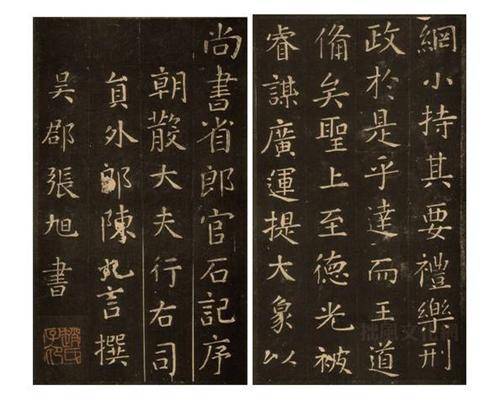 尚書省郎官石記序
朝散大夫行右司
員外郎陳九言撰
吳郡張旭書
網小持其要禮樂刑
政於是乎達而王道
備矣聖上至德光被
睿謀廣運提大象以
拙風文化網